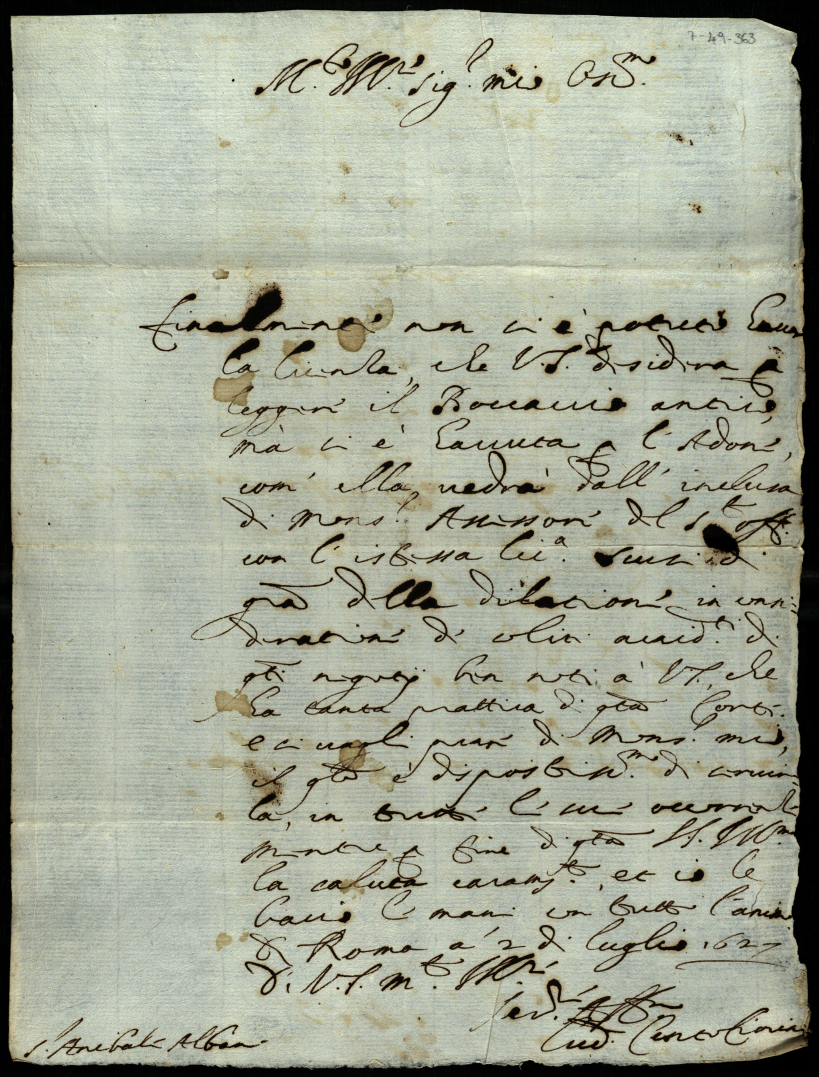 7-49-363
M.to Ill.re sig.r mio Oss.mo
Finalmente non si è potuto hauer
la licenza, che V.S. desidera p
leggere il Boccaccio antico,
mà si è hauuta p l'Adone,
com' ella uedrà dall' inclusa
di Mons.r Assessore del S.to Off.o
con l'istessa lic.a Scusi di
gra della dilatione in consi-
deratione di soliti accid.ti di
q.ti negotij ben noti à V.S. che
ha tanta prattica di q.ta Corte.
e di Mons.r mio,
il q.le è dispostiss.mo di seruir-
la, in tutte le sue occorrenze
mentre p fine di q.ta S.S. Ill.ma
la saluta caram.te, et io le
bacio le mani con tutto l'animo
Di Roma à 2 di luglio 1627
Di V.S. m.to Ill.re
Ser.re Aff.mo
Lud.
S.r Anibale Albani